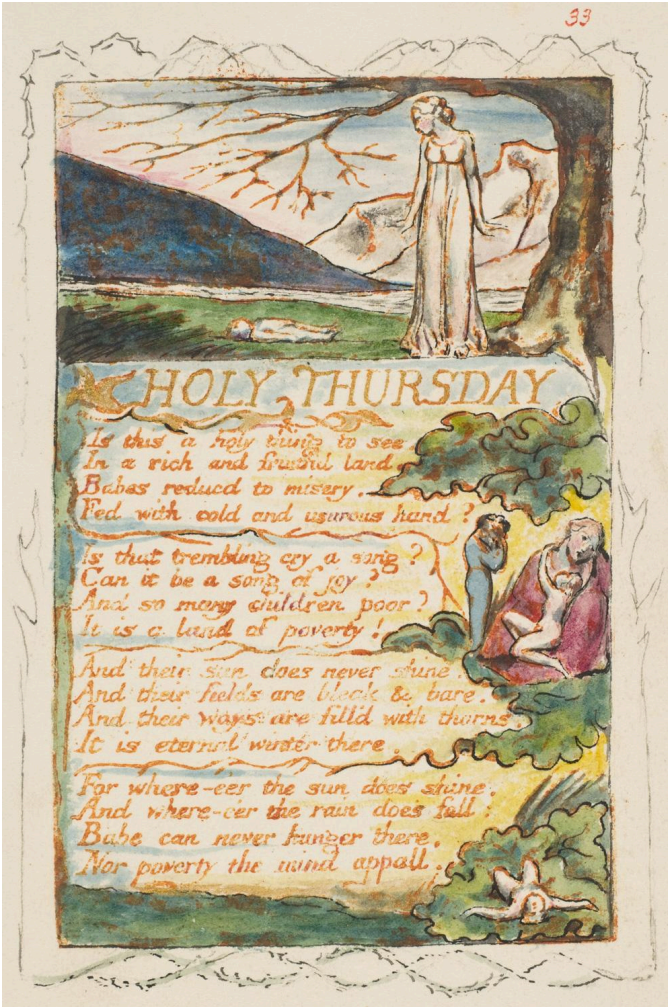 33
HOLY THURSDAY
Is this a holy thing to see.
In a rich and fruitful land.
Babes reducd to misery.
Fed with cold and usurous hand?
Is that trembling cry a song?
Can it be a song of joy?
And so many children poor?
It is a land of poverty!
And their sun does never shine.
And their fields are bleak & bare.
And their ways are fill'd with thorns
It is eternal winter there.
For where-e'er the sun does shine.
And where-e'er the rain does fall:
Babe can never hunger there,
Nor poverty the mind appall.